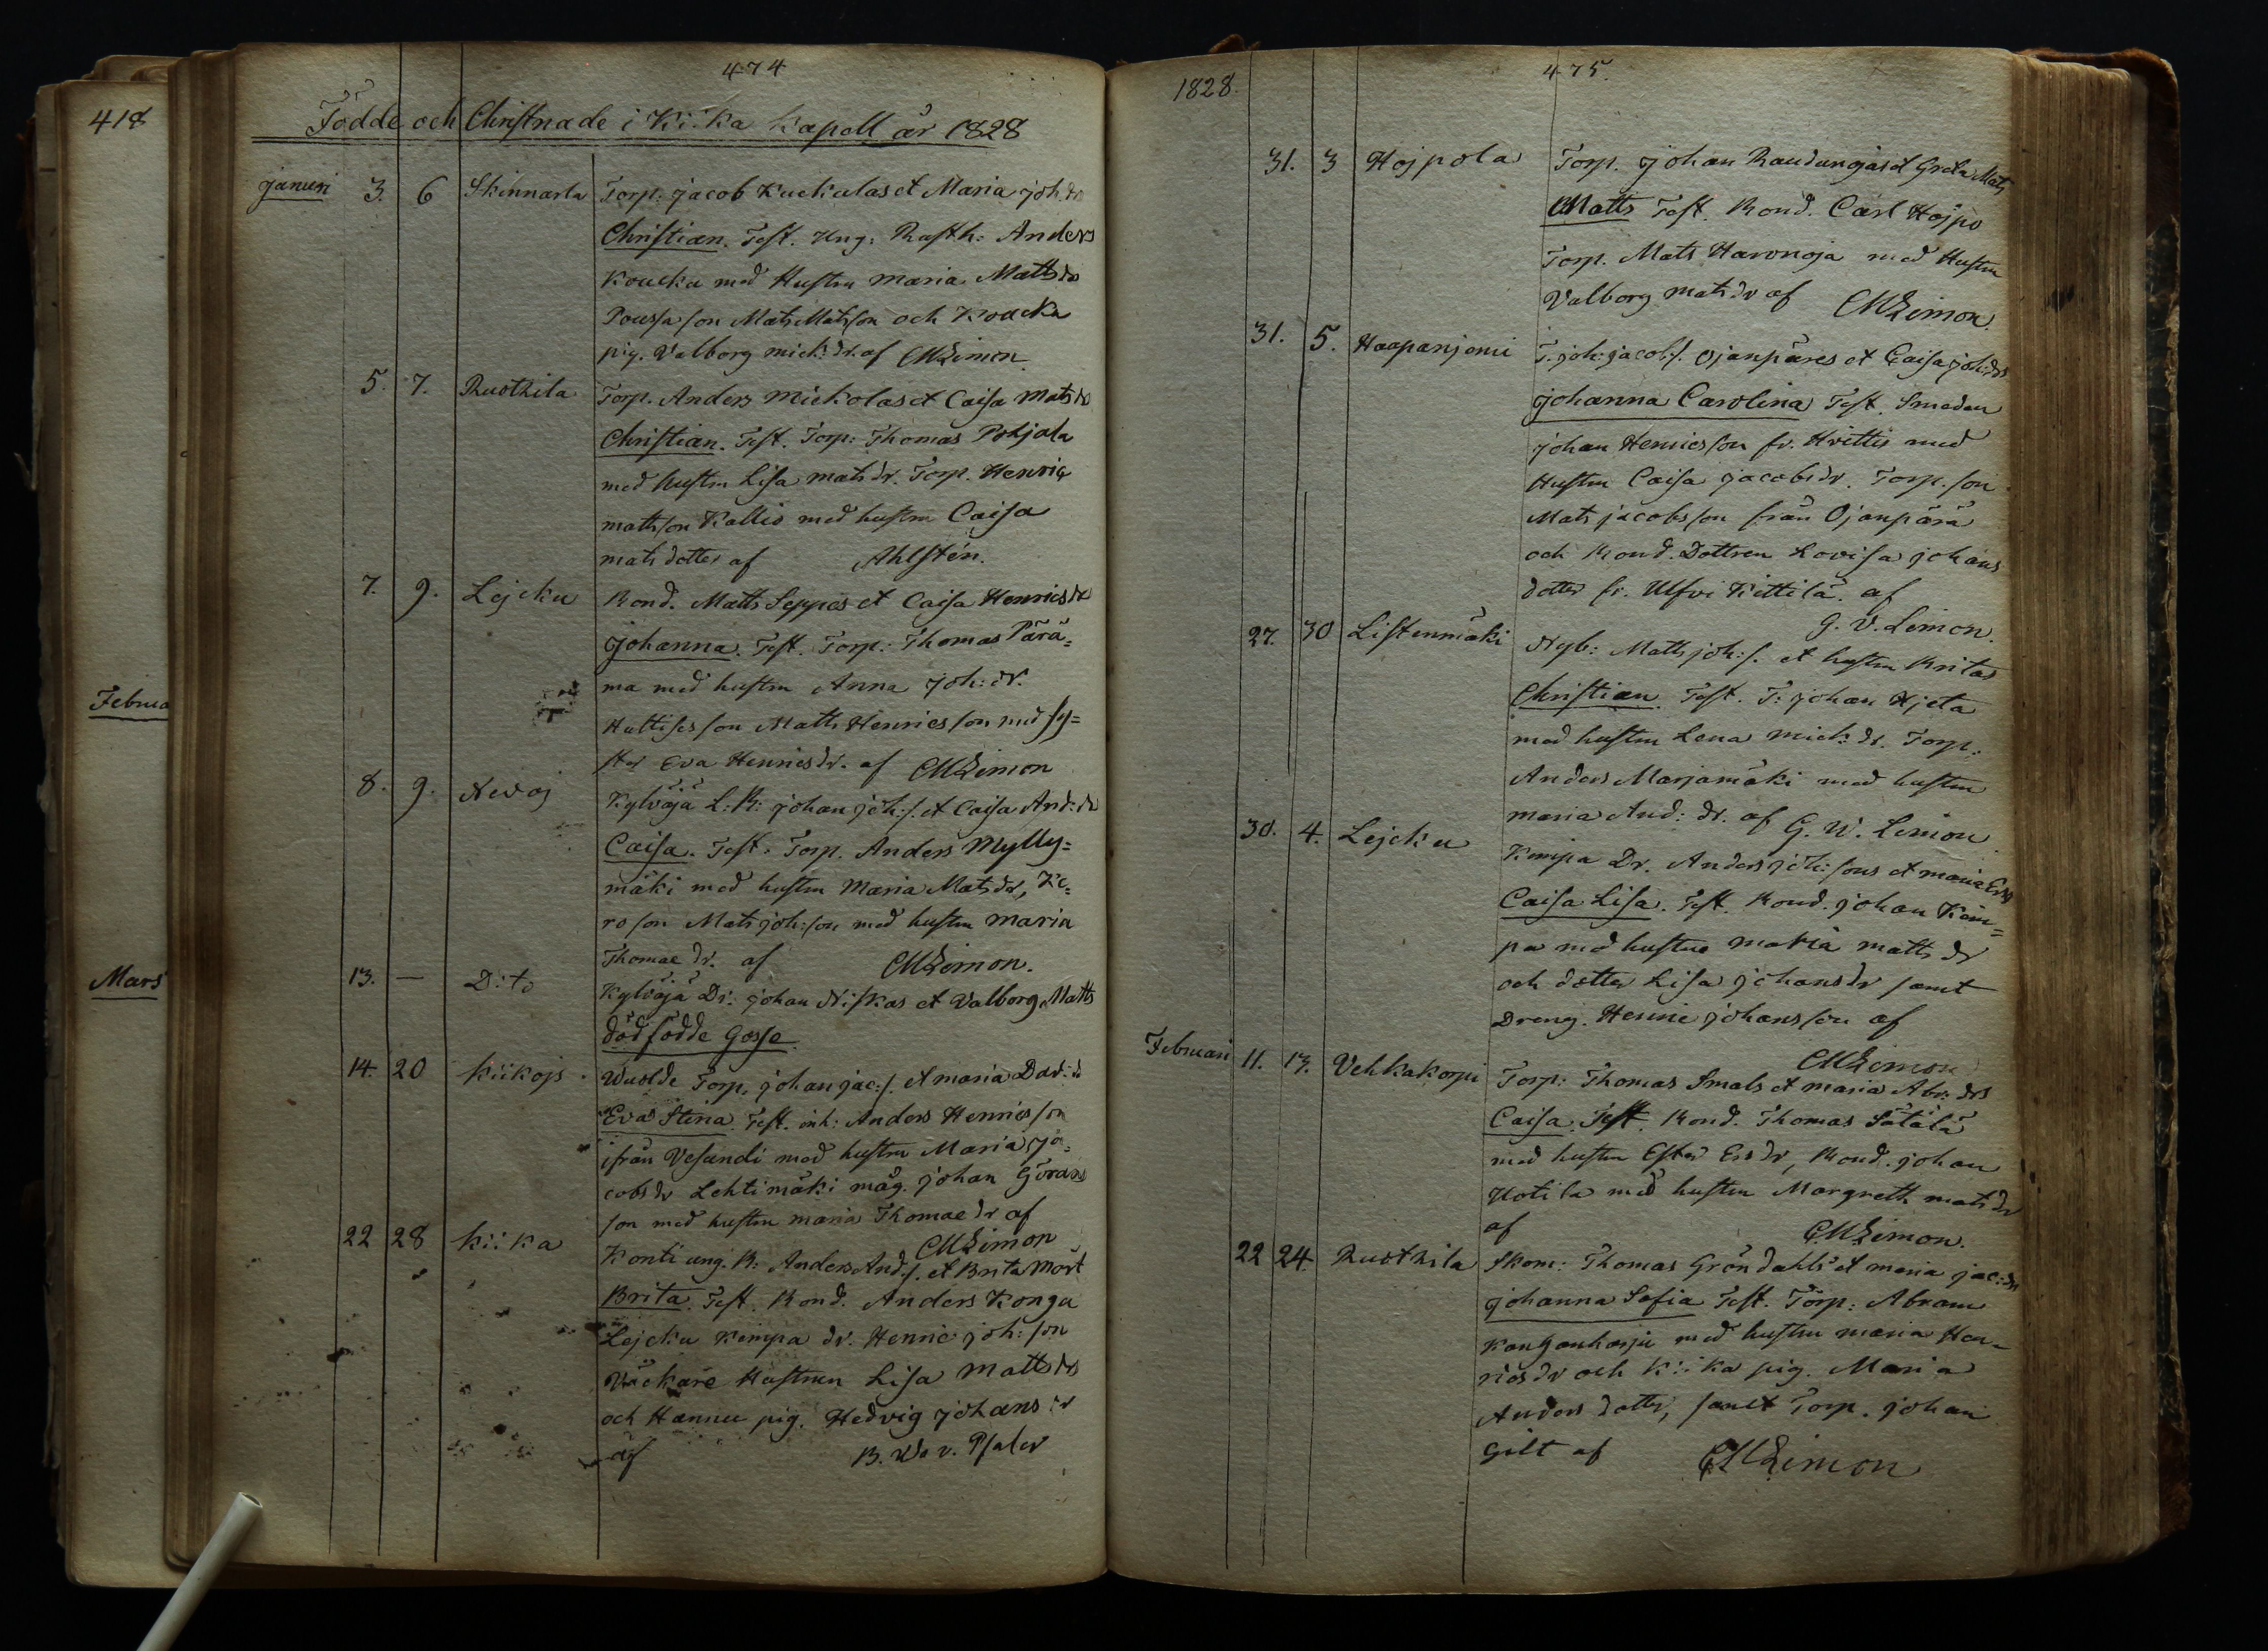 418
Februa
Mars
474
Födde och Christnade i Kiika Kapell år 1828
januari 3. 6 Skinnarla Torp: jacob Kuckulas et Maria joh:dr
Christian. Test. Ung: Rusth: Anders
Koucku med Hustru Maria Mattsdr
Poussa son Mats Matsson och Koucku
pig. Valborg mick:dr. af CM Limon
5. 7. Ruothila Torp. Anders Mickolas et Caisa Matsdr
Christian. Test. Torp: Thomas Pohjala
med hustru Lisa matsdr. Torp. Henric
mattsson Kallio med hustru Caisa
mats dotter af Ahlstén.
7. 9. Lejcku Bond. Matts Seppes et Caisa Henricsdr
Johanna. Test. Torp. Thomas Pärä=
ma med hustru Anna joh:dr.
Huttises son Matts Henricsson med sy=
ster Eva Henricsdr. af CM Limon
8. 9. Nevoj Kylvöjä L:B: johan joh:s. et Caisa And:dr
Caisa. Test: Torp. Anders Mylly=
mäki med hustru Maria Matsdr, Ke=
ro son Mats joh:son med hustru maria
Thomae dr. af CM Limon.
13. — D:to Kylvöjä Dr: johan Niskas et Valborg Matts
dödfödde Gosse.
14. 20 Kiikojs Wuolde Torp. johan jac:s. et maria Dav:dr
Eva Stina. Test. inh: Anders Henricsson
ifrån Vesandi med hustru Maria Ja=
cobsdr Lehtimäki måg. johan Görans
son med hustru maria Thomaedr af
CM Limon
22 28 Kiika Konti ung. B: Anders And:s. et Brita Mårt
Brita. Test. Bond. Anders Konga
Lejcku Kempa dr. Henric joh:son
Väckäre Hustrun Lisa Mattsdr
och Hannu pig. Hedvig johansdr
af B. W. v. Pfaler
1828. 475.
31. 3 Hojpola Torp. johan Raudunojas et Greta Mats
Matts Test. Bond. Carl Hojpo
Torp. Mats Haronoja med Hustru
Valborg matsdr af CM Limon.
31. 5. Haapanjemi T. joh: jacobs. Ojanpäres et Caisa joh:drs
Johanna Carolina Test. Smeden
johan Henricsson fr. Hvittis med
Hustru Caisa jacobsdr. Torp. son
Mats jacobsson från Ojanpärä
och Bond. Dottren Lovisa johans
dotter fr. Ulfvi Kittilä. af
G. V. Limon.
27. 30 Listenmäki Nyb: Matts joh:s. et hustru Britas
Christian. Test. T: johan Hjeta
med hustru Lena mick:dr. Torp:
Anders Marjamäki med hustru
maria And:dr. af G. W. Limon.
30. 4. Lejcku Kempa Dr. Anders joh:sons et maria Ers
Caisa Lisa. Test. Bond. johan Kem=
pa med hustru maria mattsdr
och dotter Lisa johansdr samt
Dreng. Henric johansson af
CM Limon
Februari 11. 13. Vehkakorpi Torp: Thomas Smals et maria Abr:drs
Caisa. Test. Bond. Thomas Sätälä
med hustru Ester Ersdr, Bond. johan
Uotila med hustru Margreth matsdr
af CM Limon.
22 24. Ruothila Skom: Thomas Gröndahls et maria jac:dr
Johanna Sofia Test. Torp: Abram
Kanganharju med hustru maria Hen=
ricsdr och Kiika pig. Maria
Anders dotter, samt Torp. johan
Gilt af CM Limon